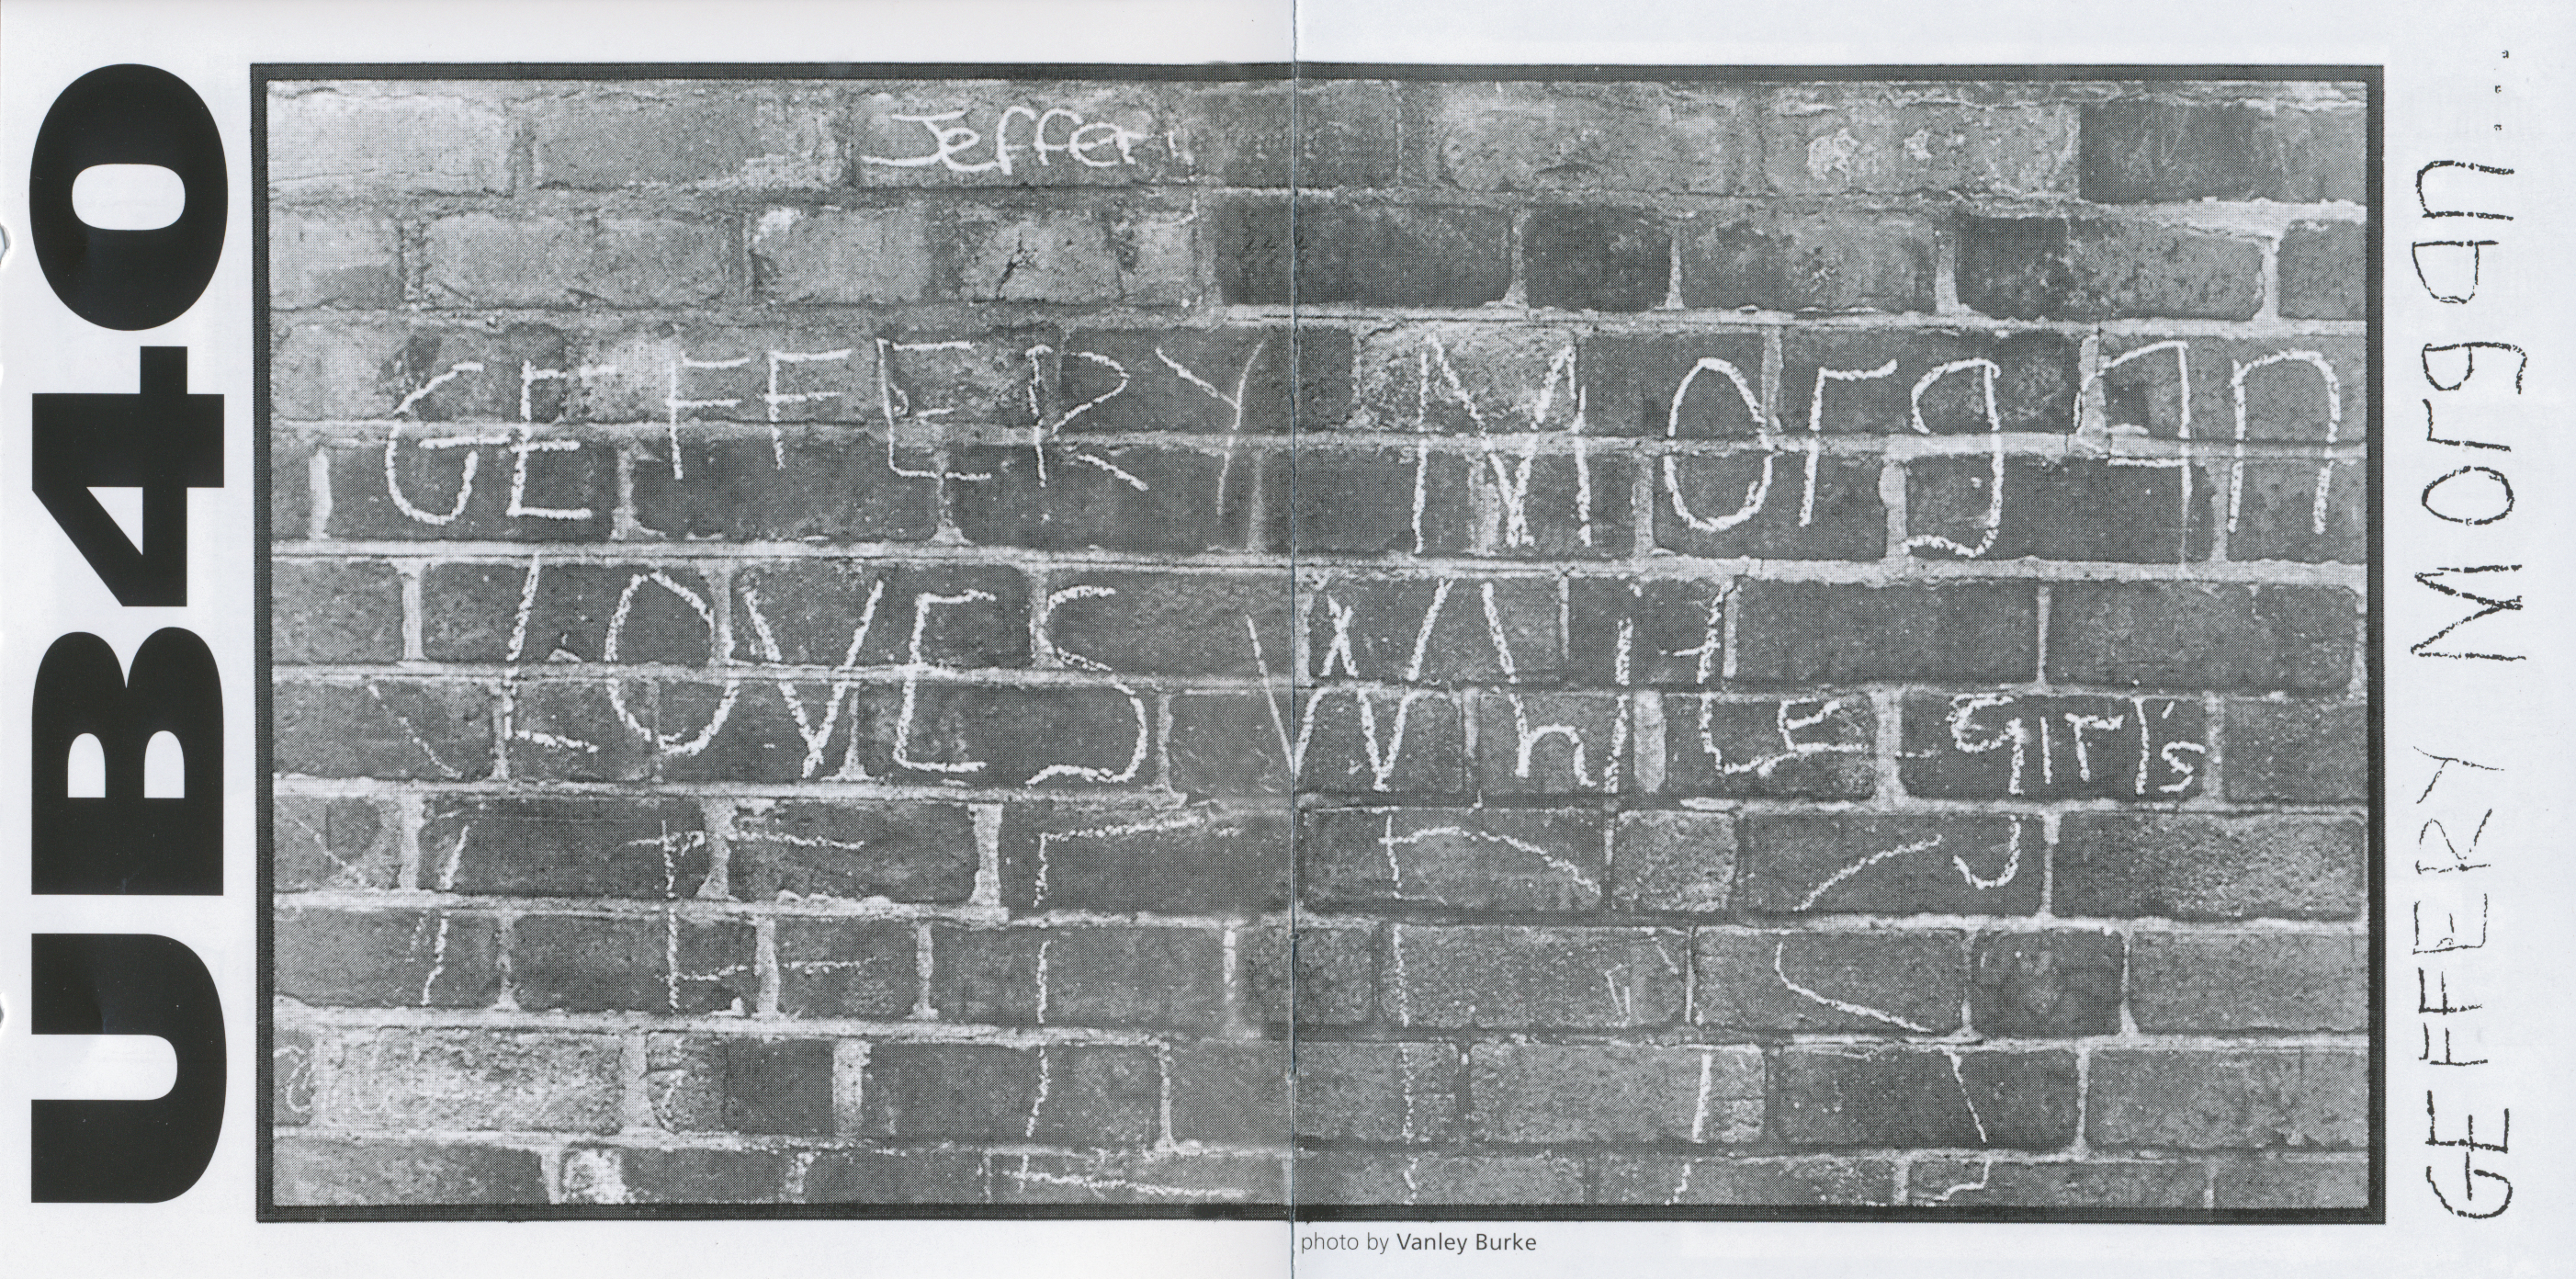 UB40
Jefferi
GEFFERY Morgan
LOVES White girl's
photo by Vanley Burke
GEFFERY Morgan....